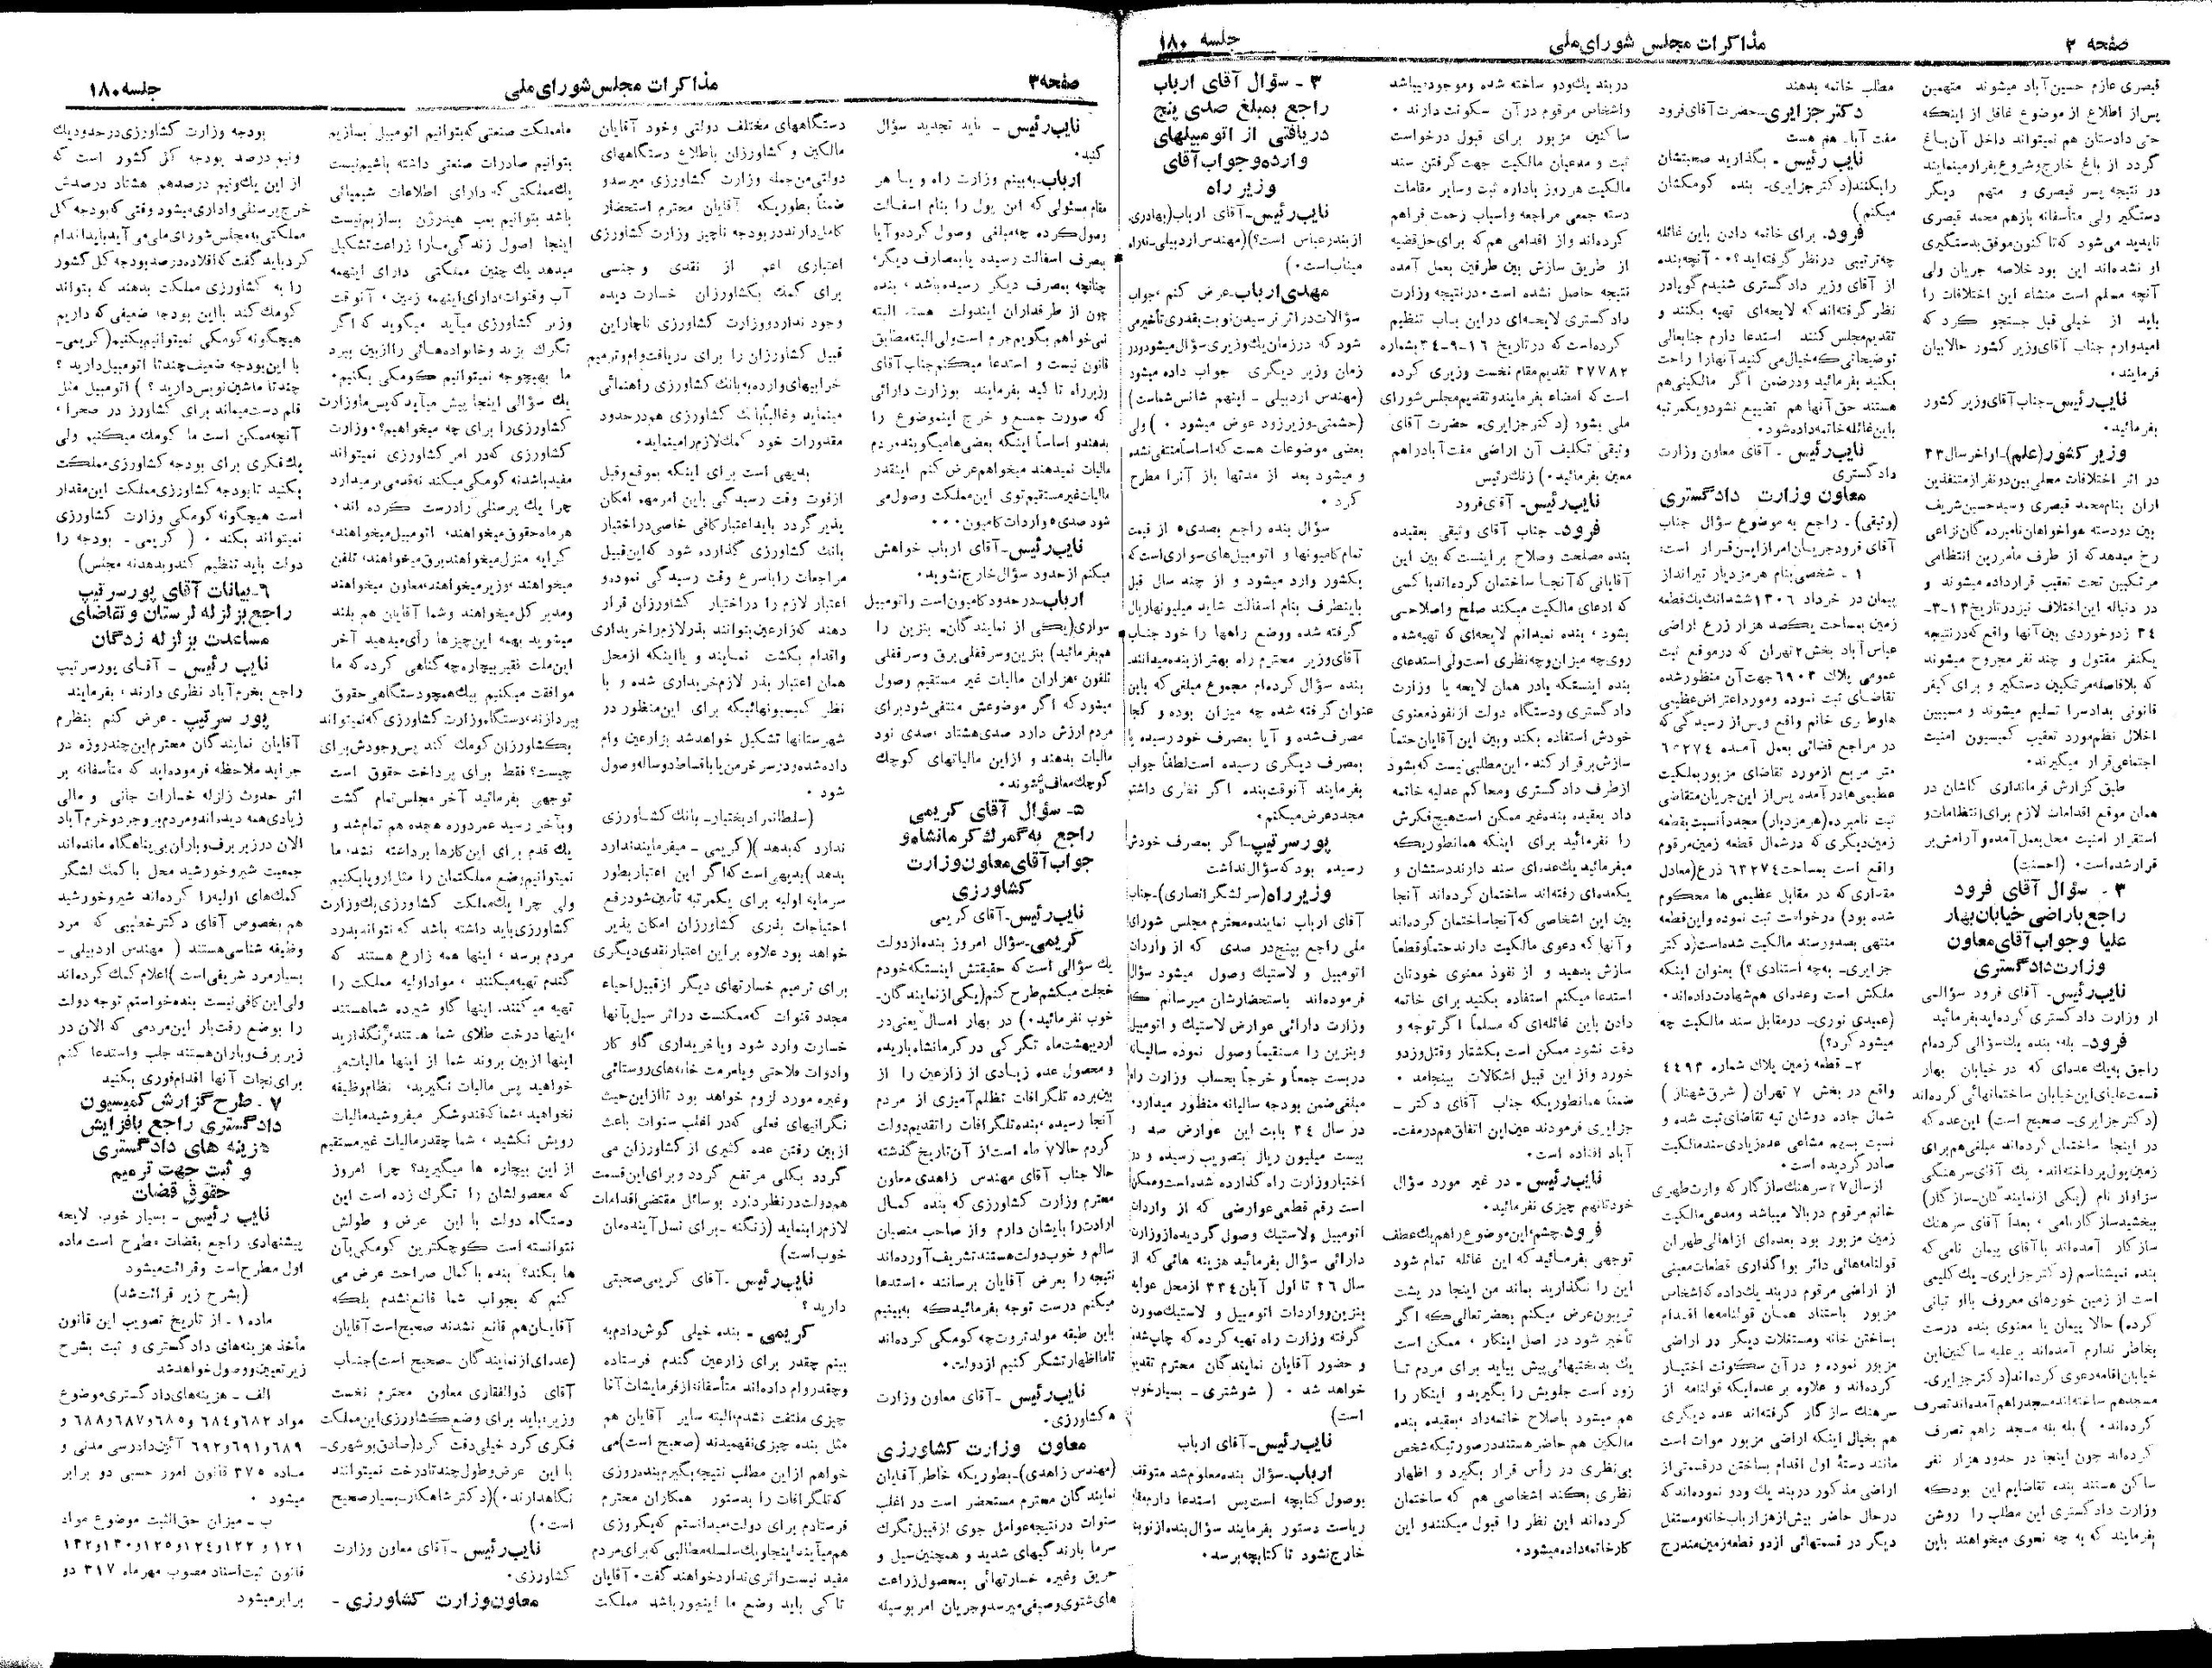 صفحه ۲
مذاکرات مجلس شورای ملی
جلسه ۱۸۰
قیصری عازم حسین‌آباد میشوند متهمین
پس از اطلاع از موضوع غافل از اینکه
حتی دادستان هم نمیتواند داخل آن باغ
گردد از باغ خارج و شروع بفرار مینمایند
در نتیجه پسر قیصری و متهم دیگر
دستگیر ولی متأسفانه بازهم محمد قیصری
ناپدید می‌شود که تا کنون موفق بدستگیری
او نشده‌اند این بود خلاصه جریان ولی
آنچه مسلم است منشاء این اختلافات را
باید از خیلی قبل جستجو کرد که
امیدوارم جناب آقای وزیر کشور حالا بیان
فرمایند.
نایب رئیس-جناب آقای وزیر کشور
بفرمائید.
وزیر کشور (علم)-اواخر سال ۳۳
در اثر اختلافات محلی بین دو نفر از متنفذین
اران بنام محمد قیصری و سید حسین شریف
بین دو دسته هواخواهان نامبرده گان نزاعی
رخ میدهد که از طرف مأمورین انتظامی
مرتکبین تحت تعقیب قرار داده میشوند و
در دنباله این اختلاف نیز در تاریخ ۱۳-۳-
۳۴ زد و خوردی بین آنها واقع که در نتیجه
یکنفر مقتول و چند نفر مجروح میشوند
که بلافاصله مرتکبین دستگیر و برای کیفر
قانونی بدادسرا تسلیم میشوند و مسببین
اخلال نظم مورد تعقیب کمیسیون امنیت
اجتماعی قرار میگیرند.
طبق گزارش فرمانداری کاشان در
همان موقع اقدامات لازم برای انتظامات و
استقرار امنیت محل بعمل آمده و آرامش بر
قرار شده است. (احسنت)
۳ - سؤال آقای فرود
راجع باراضی خیابان بهار
علیا وجواب آقای معاون
وزارت دادگستری
نایب رئیس- آقای فرود سؤالی
از وزارت دادگستری کرده‌اید بفرمائید
فرود- بله، بنده یك سؤالی کرده‌ام
راجق به یك عده‌ای که در خیابان بهار
قسمت علیای این خیابان ساختمانهائی کرده‌اند
(دکتر جزایری- صحیح است) این عده که
در اینجا ساختمان کرده‌اند مبلغی هم برای
زمین پول پرداخته‌اند. یك آقای سرهنگی
سزاوار نام (یکی از نمایندگان-سازگار)
ببخشید سازگار نامی، بعداً آقای سرهنك
سازکار آمده‌اند با آقای پیمان نامی که
بنده نمیشناسم (دکتر جزایری- یك کلیمی
است از زمین خورهای معروف با او تبانی
کرده) حالا پیمان یا معنوی بنده درست
بخاطر ندارم آمده‌اند بر علیه ساکنین این
خیابان اقامه دعوی کرده‌اند (دکتر جزایری-
مسجد هم ساخته‌اند مسجد را هم آمده‌اند تصرف
کرده‌اند.) بله بنه مسجد راهم تصرف
کرده‌اند چون اینجا در حدود هزار نفر
ساکن هستند بنده تقاضایم این بود که
وزارت دادگستری این مطلب را روشن
بفرمایند که به چه نحوی میخواهند باین
مطلب خاتمه بدهند
دکتر جزایری-حضرت آقای فرود
مفت آباد هم هست
نایب رئیس - بگذارید صحبتشان
را بکنند (دکتر جزایری- بنده کومکشان
میکنم)
فرود- برای خاتمه دادن باین غائله
چه ترتیبی در نظر گرفته‌اید؟.. آنچه بنده
از آقای وزیر دادگستری شنیدم گویا در
نظر گرفته‌اند که لایحه‌ای تهیه بکنند و
تقدیم مجلس کنند استدعا دارم جنابعالی
توضیحاتی که خیال می‌کنید آنها را راحت
بکنید بفرمائید و در ضمن اگر مالکینی هم
هستند حق آنها هم تضییع نشود و یکمرتبه
باین غائله خاتمه داده شود.
نایب رئیس - آقای معاون وزارت
دادگستری
معاون وزارت دادگستری
(وثیقی) - راجع به موضوع سؤال جناب
آقای فرود جریان امر از این قرار است:
۱ - شخصی بنام هرمزدیار تیرانداز
پیمان در خرداد ۱۳۰۶ ششدانك یك قطعه
زمین بمساحت یکصد هزار زرع اراضی
عباس آباد بخش ۲ تهران که در موقع ثبت
عمومی پلاك ۶۹۰۳ جهت آن منظور شده
تقاضای ثبت نموده و مورد اعتراض عظیمی
ها وطری خانم واقع و پس از رسیدگی که
در مراجع قضائی بعمل آمده ۶۵۲۷۴
متر مربع از مورد تقاضای مزبور بملکیت
عظیمی ها در آمده پس از این جریان متقاضی
ثبت نامبرده (هرمزدیار) مجدداً نسبت بقطعه
زمین دیگری که در شمال قطعه زمین مرقوم
واقع است بمساحت ۶۳۲۷۴ ذرع (معادل
مقداری که در مقابل عظیمی ها محکوم
شده بود) درخواست ثبت نموده و این قطعه
منتهی بصدور سند مالکیت شده است (دکتر
جزایری- به چه استنادی؟) بعنوان اینکه
ملکش است وعده‌ای هم شهادت داده‌اند.
(عمیدی نوری- در مقابل سند مالکیت چه
میشود کرد؟)
۲- قطعه زمین پلاك شماره ۴۴۹۳
واقع در بخش ۷ تهران (شرق شهناز)
شمال جاده دوشان تپه تقاضای ثبت شده و
نسبت بسهم مشاعی عده زیادی سند مالکیت
صادر گردیده است.
از سال ۲۷ سرهنك سازگار که وارث طهری
خانم مرقوم در بالا میباشد ومدعی مالکیت
زمین مزبور بود بعده‌ای از اهالی طهران
قولنامه‌هائی دائر بواگذاری قطعات معینی
از اراضی مرقوم در بند یك داده که اشخاص
مزبور باستناد همان قولنامه‌ها اقدام
بساختن خانه و مستغلات دیگر در اراضی
مزبور نموده و در آن سکونت اختیار
کرده‌اند و علاوه بر عده‌ایکه قولنامه از
سرهنك سازگار گرفته‌اند عده دیگری
هم بخیال اینکه اراضی مزبور موات است
مانند دستهٔ اول اقدام بساختن در قسمتی از
اراضی مذکور در بند یك و دو نموده‌اند که
در حال حاضر بیش از هزار باب خانه و مستغل
دیگر در قسمتهائی از دو قطعه زمین مندرج
در بند یك و دو ساخته شده وموجود میباشد
و اشخاص مرقوم در آن سکونت دارند.
ساکنین مزبور برای قبول درخواست
ثبت و مدعیان مالکیت جهت گرفتن سند
مالکیت هر روز باداره ثبت و سایر مقامات
دسته جمعی مراجعه و اسباب زحمت فراهم
کرده‌اند و از اقدامی هم که برای حل قضیه
از طریق سازش بین طرفین بعمل آمده
نتیجه حاصل نشده است. در نتیجه وزارت
دادگستری لایحه‌ای در این باب تنظیم
کرده است که در تاریخ ۱۶-۹-۳۴ بشماره
۳۷۷۸۲ تقدیم مقام نخست وزیری کرده
است که امضاء بفرمایند و تقدیم مجلس شورای
ملی بشود (دکتر جزایری- حضرت آقای
وثیقی تکلیف آن اراضی مفت آباد را هم
معین بفرمائید.) زنك رئیس
نایب رئیس- آقای فرود
فرود- جناب آقای وثیقی بعقیده
بنده مصلحت وصلاح بر اینست که بین این
آقایانی که آنجا ساختمان کرده‌اند با کسی
که ادعای مالکیت میکند صلح و اصلاحی
بشود، بنده نمیدانم لایحه‌ای که تهیه شده
روی چه میزان وچه نظری است ولی استدعای
بنده اینستکه یا در همان لایحه یا وزارت
دادگستری ودستگاه دولت از نفوذ معنوی
خودش استفاده بکند و بین این آقایان حتماً
سازش بر قرار کند. این مطلبی نیست که بشود
از طرف دادگستری و محاکم عدلیه خاتمه
داد بعقیده بنده غیر ممکن است هیچ فکرش
را نفرمائید برای اینکه همانطوریکه
میفرمائید یك عده‌ای سند دارند دستشان و
یکعده‌ای رفته‌اند ساختمان کرده‌اند آنجا
بین این اشخاصی که آنجا ساختمان کرده‌اند
و آنها که دعوی مالکیت دارند حتماً و قطعاً
سازش بدهید و از نفوذ معنوی خودتان
استدعا میکنم استفاده بکنید برای خاتمه
دادن باین غائله‌ای که مسلماً اگر توجه و
دقت نشود ممکن است بکشتار وقتل و زدو
خورد و از این قبیل اشکالات بینجامد.
ضمناً همانطوریکه جناب آقای دکتر -
جزایری فرمودند عین این اتفاق هم در مفت-
آباد افتاده است.
نایب رئیس - در غیر مورد سؤال
خودتانهم چیزی نفرمائید.
فرود-چشم، این موضوع را هم یك عطف
توجهی بفرمائید که این غائله تمام شود
این را نگذارید بماند من اینجا در پشت
تریبون عرض میکنم بحضر تعالی که اگر
تأخیر شود در اصل اینکار، ممکن است
یك بدبختیهائی پیش بیاید برای مردم تا
زود است جلویش را بگیرید و اینکار را
هم میشود باصلاح خاتمه داد، بعقیده بنده
مالکین هم حاضر هستند در صورتیکه شخص
بی نظری در رأس قرار بگیرد و اظهار
نظری بکند اشخاصی هم که ساختمان
کرده‌اند این نظر را قبول میکنند و این
کار خاتمه داده میشود.
۳ - سؤال آقای ارباب
راجع بمبلغ صدی پنج
دریافتی از اتومبیلهای
وارده وجواب آقای
وزیر راه
نایب رئیس-آقای ارباب (بهادری-
از بندر عباس است؟) (مهندس اردبیلی-نه راه
میناب است.)
مهدی ارباب-عرض کنم، جواب
سؤالات در اثر نرسیدن نوبت بقدری تأخیر می
شود که در زمان یك وزیری سؤال میشود و در
زمان وزیر دیگری جواب داده میشود
(مهندس اردبیلی - اینهم شانس شماست)
(حشمتی-وزیر زود عوض میشود.) ولی
بعضی موضوعات هست که اساساً منتفی نشده
و میشود بعد از مدتها باز آنرا مطرح
کرد.
سؤال بنده راجع بصدی ۵ از قیمت
تمام کامیونها و اتومبیل‌های سواری است که
بکشور وارد میشود و از چند سال قبل
باینطرف بنام اسفالت شاید میلیونها ریال
گرفته شده ووضع راهها را خود جناب
آقای وزیر محترم راه بهتر از بنده میدانند.
بنده سؤال کرده‌ام مجموع مبلغی که باین
عنوان گرفته شده چه میزان بوده و کجا
مصرف شده و آیا بمصرف خود رسیده یا
بمصرف دیگری رسیده است لطفاً جواب
بفرمایند آنوقت بنده اگر نظری داشتم
مجدد عرض میکنم.
پور سرتیپ-اگر بمصرف خودش
رسیده بود که سؤال نداشت
وزیر راه (سرلشگر انصاری)-جناب
آقای ارباب نماینده محترم مجلس شورای
ملی راجع بپنج در صدی که از واردات
اتومبیل و لاستیك وصول میشود سؤال
فرموده‌اند باستحضارشان میرسانم که
وزارت دارائی عوارض لاستیك و اتومبیل
و بنزین را مستقیماً وصول نموده سالیانه
در بست جمعاً و خرجاً بحساب وزارت راه
مبلغی ضمن بودجه سالیانه منظور میدارد.
در سال ۳۴ بابت این عوارض صد و
بیست میلیون ریال بتصویب رسیده و در
اختیار وزارت راه گذارده شده است و ممکن
است رقم قطعی عوارضی که از واردات
اتومبیل و لاستیك وصول گردیده از وزارت
دارائی سؤال بفرمائید هزینه هائی که از
سال ۲۶ تا اول آبان ۳۳۴ از محل عواید
بنزین و واردات اتومبیل و لاستیك صورت
گرفته وزارت راه تهیه کرده که چاپ شده
و حضور آقایان نمایندگان محترم تقدیم
خواهد شد. (شوشتری - بسیار خوب
است)
نایب رئیس-آقای ارباب
ارباب-سؤال بنده معلوم شد متوقف
بوصول کتابچه است پس استدعا دارم مقام
ریاست دستور بفرمایند سؤال بنده از نوبت
خارج نشود تا کتابچه برسد.
صفحه ۳
مذاکرات مجلس شورای ملی
جلسه ۱۸۰
نایب رئیس - باید تجدید سؤال
کنید.
ارباب-به بینم وزارت راه و یا هر
مقام مسئولی که این پول را بنام اسفالت
وصول کرده چه مبلغی وصول کرده و آیا
بمصرف اسفالت رسیده یا بمصارف دیگر،
چنانچه بمصرف دیگر رسیده باشد، بنده
چون از طرفداران ایندولت هستم البته
نمی خواهم بگویم جرم است ولی البته مطابق
قانون نیست و استدعا میکنم جناب آقای
وزیر راه تا کید بفرمایند بوزارت دارائی
که صورت جمع و خرج اینموضوع را
بدهند و اساساً اینکه بعضی ها میگویند مردم
مالیات نمیدهند میخواهم عرض کنم اینقدر
مالیات غیر مستقیم توی این مملکت وصول می
شود صدی ۵ واردات کامیون...
نایب رئیس-آقای ارباب خواهش
میکنم از حدود سؤال خارج نشوید.
ارباب-در حدود کامیون است و اتومبیل
سواری (یکی از نمایندگان- بنزین را
هم بفرمائید) بنزین و سر قفلی برق و سر قفلی
تلفون، هزاران مالیات غیر مستقیم وصول
میشود که اگر موضوعش منتفی شود برای
مردم ارزش دارد صدی هشتاد، صدی نود
مالیات بدهند و از این مالیاتهای کوچك
کوچك معاف بشوند.
۵- سؤال آقای کریمی
راجع به گمرك کرمانشاه و
جواب آقای معاون وزارت
کشاورزی
نایب رئیس-آقای کریمی
کریمی-سؤال امروز بنده از دولت
یك سؤالی است که حقیقتش اینستکه خودم
خجلت میکشم طرح کنم (یکی از نمایندگان-
خوب نفرمائید.) در بهار امسال یعنی در
اردیبهشت ماه تگرگی در کرمانشاه باریده
و محصول عده زیادی از زارعین را از
بین برده تلگرافات تظلم آمیزی از مردم
آنجا رسیده، بنده تلگرافات را تقدیم دولت
کردم حالا ۷ ماه است از آن تاریخ گذشته
حالا جناب آقای مهندس زاهدی معاون
محترم وزارت کشاورزی که بنده کمال
ارادت را بایشان دارم و از صاحب منصبان
سالم و خوب دولت هستند تشریف آورده‌اند
نتیجه را بعرض آقایان برسانند. استدعا
میکنم درست توجه بفرمائید که به بینیم
باین طبقه مولد ثروت چه کومکی کرده‌اند
تا ما اظهار تشکر کنیم از دولت.
نایب رئیس -آقای معاون وزارت
کشاورزی.
معاون وزارت کشاورزی
(مهندس زاهدی)-بطوریکه خاطر آقایان
نمایندگان محترم مستحضر است در اغلب
سنوات در نتیجه عوامل جوی از قبیل تگرك
سرما بارندگیهای شدید و همچنین سیل و
حریق وغیره خسارتهائی بمحصول زراعت
های شتوی و صیفی میرسد و جریان امر بوسیله
دستگاههای مختلف دولتی وخود آقایان
مالکین و کشاورزان باطلاع دستگاههای
دولتی من جمله وزارت کشاورزی میرسد و
ضمناً بطوریکه آقایان محترم استحضار
کامل دارند در بودجه ناچیز وزارت کشاورزی
اعتباری اعم از نقدی و جنسی
برای کمك بکشاورزان خسارت دیده
وجود ندارد و وزارت کشاورزی ناچار این
قبیل کشاورزان را برای دریافت وام و ترمیم
خرابیهای وارده به بانك کشاورزی راهنمائی
مینماید و غالباً بانك کشاورزی هم در حدود
مقدورات خود کمك لازم را مینماید.
بدیهی است برای اینکه بموقع وقبل
از فوت وقت رسیدگی باین امر مهم امکان
پذیر گردد باید اعتبار کافی خاصی در اختیار
بانك کشاورزی گذارده شود که این قبیل
مراجعات را با سرع وقت رسیدگی نموده و
اعتبار لازم را در اختیار کشاورزان قرار
دهند که زارعین بتوانند بذر لازم را خریداری
واقدام بکشت نمایند و یا اینکه از محل
همان اعتبار بذر لازم خریداری شده و با
نظر کمیسیونهائیکه برای این منظور در
شهرستانها تشکیل خواهد شد بزارعین وام
داده شده و در سر خرمن یا باقساط دو ساله وصول
شود.
(سلطانمراد بختیار- بانك کشاورزی
ندارد که بدهد) (کریمی - میفرمایند ندارد
بدهد) بدیهی است که اگر این اعتبار بطور
سرمایه اولیه برای یکمرتبه تأمین شود رفع
احتیاجات بذری کشاورزان امکان پذیر
خواهد بود علاوه بر این اعتبار نقدی دیگری
برای ترمیم خسارتهای دیگر از قبیل احیاء
مجدد قنوات که ممکنست در اثر سیل بآنها
خسارت وارد شود و یا خریداری گاو کار
وادوات فلاحتی و یا مرمت خانه‌های روستائی
وغیره مورد لزوم خواهد بود تا از این حیث
نگرانیهای فعلی که در اغلب سنوات باعث
از بین رفتن عده کثیری از کشاورزان می
گردد بکلی مرتفع گردد و برای این قسمت
هم دولت در نظر دارد بوسائل مقتضی اقدامات
لازم را بنماید (زنگنه -برای نسل آینده‌مان
خوب است)
نایب رئیس -آقای کریمی صحبتی
دارید؟
کریمی - بنده خیلی گوش دادم به
بینم چقدر برای زارعین گندم فرستاده
وچقدر وام داده‌اند متأسفانه از فرمایشات آقا
چیزی ملتفت نشدم، البته سایر آقایان هم
مثل بنده چیزی نفهمیدند (صحیح است) می
خواهم از این مطلب نتیجه بگیرم بنده روزی
که تلگرافات را بدستور همکاران محترم
فرستادم برای دولت میدانستم که یکروزی
هم میآیند اینجا و یك سلسله مطالبی که برای مردم
مفید نیست و اثری ندارد خواهند گفت. آقایان
تا کی باید وضع ما اینجور باشد مملکت
ما مملکت صنعتی که بتوانیم اتومبیل بسازیم
بتوانیم صادرات صنعتی داشته باشیم نیست
یك مملکتی که دارای اطلاعات شیمیائی
باشد بتوانیم بمب هیدرژن بسازیم نیست
اینجا اصول زندگی ما را زراعت تشکیل
میدهد یك چنین مملکتی دارای اینهمه
آب و قنوات، دارای اینهمه زمین، آنوقت
وزیر کشاورزی میآید میگوید که اگر
تگرك بزند و خانواده‌هائی را از بین ببرد
ما بهیچوجه نمیتوانیم کومکی بکنیم.
یك سؤالی اینجا پیش میآید که پس ما وزارت
کشاورزی را برای چه میخواهیم؟. وزارت
کشاورزی که در امر کشاورزی نمیتواند
مفید باشد نه کومکی میکند نه قدمی برمیدارد
چرا یك پرسنلی را درست کرده اند،
هر ماه حقوق میخواهند، اتومبیل میخواهند،
کرایه منزل میخواهند برق میخواهند، تلفن
میخواهند، وزیر میخواهند، معاون میخواهند
ومدیر کل میخواهند وشما آقایان هم بلند
میشوید بهمه این چیزها رأی میدهید آخر
این ملت فقیر بیچاره چه گناهی کرده که ما
موافقت میکنیم بیك همچو دستگاهی حقوق
بپردازند، دستگاه وزارت کشاورزی که نمیتواند
بکشاورزان کومك کند پس وجودش برای
چیست؟ فقط برای پرداخت حقوق است
توجهی بفرمائید آخر مجلس تمام گشت
و بآخر رسید عمر دوره هجده هم تمام شد و
یك قدم برای این کارها برداشته نشد، ما
نمیتوانیم وضع مملکتمان را مثل اروپا بکنیم
ولی چرا یك مملکت کشاورزی یك وزارت
کشاورزی باید داشته باشد که نتواند بدرد
مردم برسد، اینها همه زارع هستند که
گندم تهیه میکنند، مواد اولیه مملکت را
تهیه میکنند. اینها گاو شیرده شما هستند
، اینها درخت طلای شما هستند، نگذارید
اینها از بین بروند شما از اینها مالیات می
خواهید پس مالیات نگیرید، نظام وظیفه
نخواهید، شما که قند و شکر میفروشید مالیات
رویش نکشید، شما چقدر مالیات غیر مستقیم
از این بیچاره ها میگیرید؟ چرا امروز
که محصولشان را تگرك زده است این
دستگاه دولت با این عرض و طولش
نتوانسته است کوچکترین کومکی بآن
ها بکند؟ بنده با کمال صراحت عرض می
کنم که بجواب شما قانع نشدم بلکه
آقایان هم قانع نشدند صحیح است آقایان
(عده‌ای از نمایندگان -صحیح است) جناب
آقای ذوالفقاری معاون محترم نخست
وزیر، باید برای وضع کشاورزی این مملکت
فکری کرد خیلی دقت کرد (صادق بوشهری-
با این عرض و طول چند تا درخت نمیتوانند
نگاهدارند.) (دکتر شاهکار-بسیار صحیح
است.)
نایب رئیس -آقای معاون وزارت
کشاورزی.
معاون وزارت کشاورزی -
بودجه وزارت کشاورزی در حدود یك
ونیم درصد بودجه کل کشور است که
از این یك ونیم درصد هم هشتاد درصدش
خرج پرسنلی و اداری میشود وقتی که بودجه کل
مملکتی به مجلس شورای ملی می آید باید اقدام
کرد باید گفت که اقلا ده درصد بودجه کل کشور
را به کشاورزی مملکت بدهند که بتواند
کومك کند با این بودجه ضعیفی که داریم
هیچگونه کومکی نمیتوانیم بکنیم (کریمی-
با این بودجه ضعیف چند تا اتومبیل دارید؟
چند تا ماشین نویس دارید؟) اتومبیل مثل
قلم دست میماند برای کشاورز در صحرا،
آنچه ممکن است ما کومك میکنیم ولی
یك فکری برای بودجه کشاورزی مملکت
بکنید تا بودجه کشاورزی مملکت این مقدار
است هیچگونه کومکی وزارت کشاورزی
نمیتواند بکند. (کریمی- بودجه را
دولت باید تنظیم کند و بدهد نه مجلس)
۶-بیانات آقای پور سرتیپ
راجع بزلزله لرستان و تقاضای
مساعدت بزلزله زدگان
نایب رئیس - آقای پور سرتیپ
راجع بخرم آباد نظری دارند، بفرمایند
پور سرتیپ -عرض کنم بنظرم
آقایان نمایندگان محترم این چند روزه در
جراید ملاحظه فرموده‌اید که متأسفانه بر
اثر حدوث زلزله خسارات جانی و مالی
زیادی همه دیده‌اند و مردم بروجرد و خرم آباد
الان در زیر برف و باران بی پناهگاه مانده‌اند
جمعیت شیر و خورشید محل با کمك لشگر
کمك‌های اولیه را کرده‌اند شیر و خورشید
هم بخصوص آقای دکتر خطیبی که مرد
وظیفه شناسی هستند (مهندس اردبیلی -
بسیار مرد شریفی است) اعلام کمك کرده‌اند
ولی این کافی نیست بنده خواستم توجه دولت
را بوضع رقت بار این مردمی که الان در
زیر برف و باران هستند جلب و استدعا کنم
برای نجات آنها اقدام فوری بکنید
۷ - طرح گزارش کمیسیون
دادگستری راجع بافزایش
هزینه های دادگستری
و ثبت جهت ترمیم
حقوق قضات
نایب رئیس - بسیار خوب. لایحه
پیشنهادی راجع بقضات مطرح است ماده
اول مطرح است و قرائت میشود
(بشرح زیر قرائت شد)
ماده ۱ - از تاریخ تصویب این قانون
مأخذ هزینه‌های دادگستری و ثبت بشرح
زیر تعیین و وصول خواهد شد
الف - هزینه‌های دادگستری موضوع
مواد ۶۸۲ و ۶۸۴ و ۶۸۵ و ۶۸۷ و ۶۸۸ و
۶۸۹ و ۶۹۱ و ۶۹۲ آئین دادرسی مدنی و
ماده ۳۷۵ قانون امور حسبی دو برابر
میشود.
ب - میزان حق الثبت موضوع مواد
۱۲۱ و ۱۲۲ و ۱۲۴ و ۱۲۵ و ۱۳۰ و ۱۳۲
قانون ثبت اسناد مصوب مهر ماه ۳۱۷ دو
برابر میشود